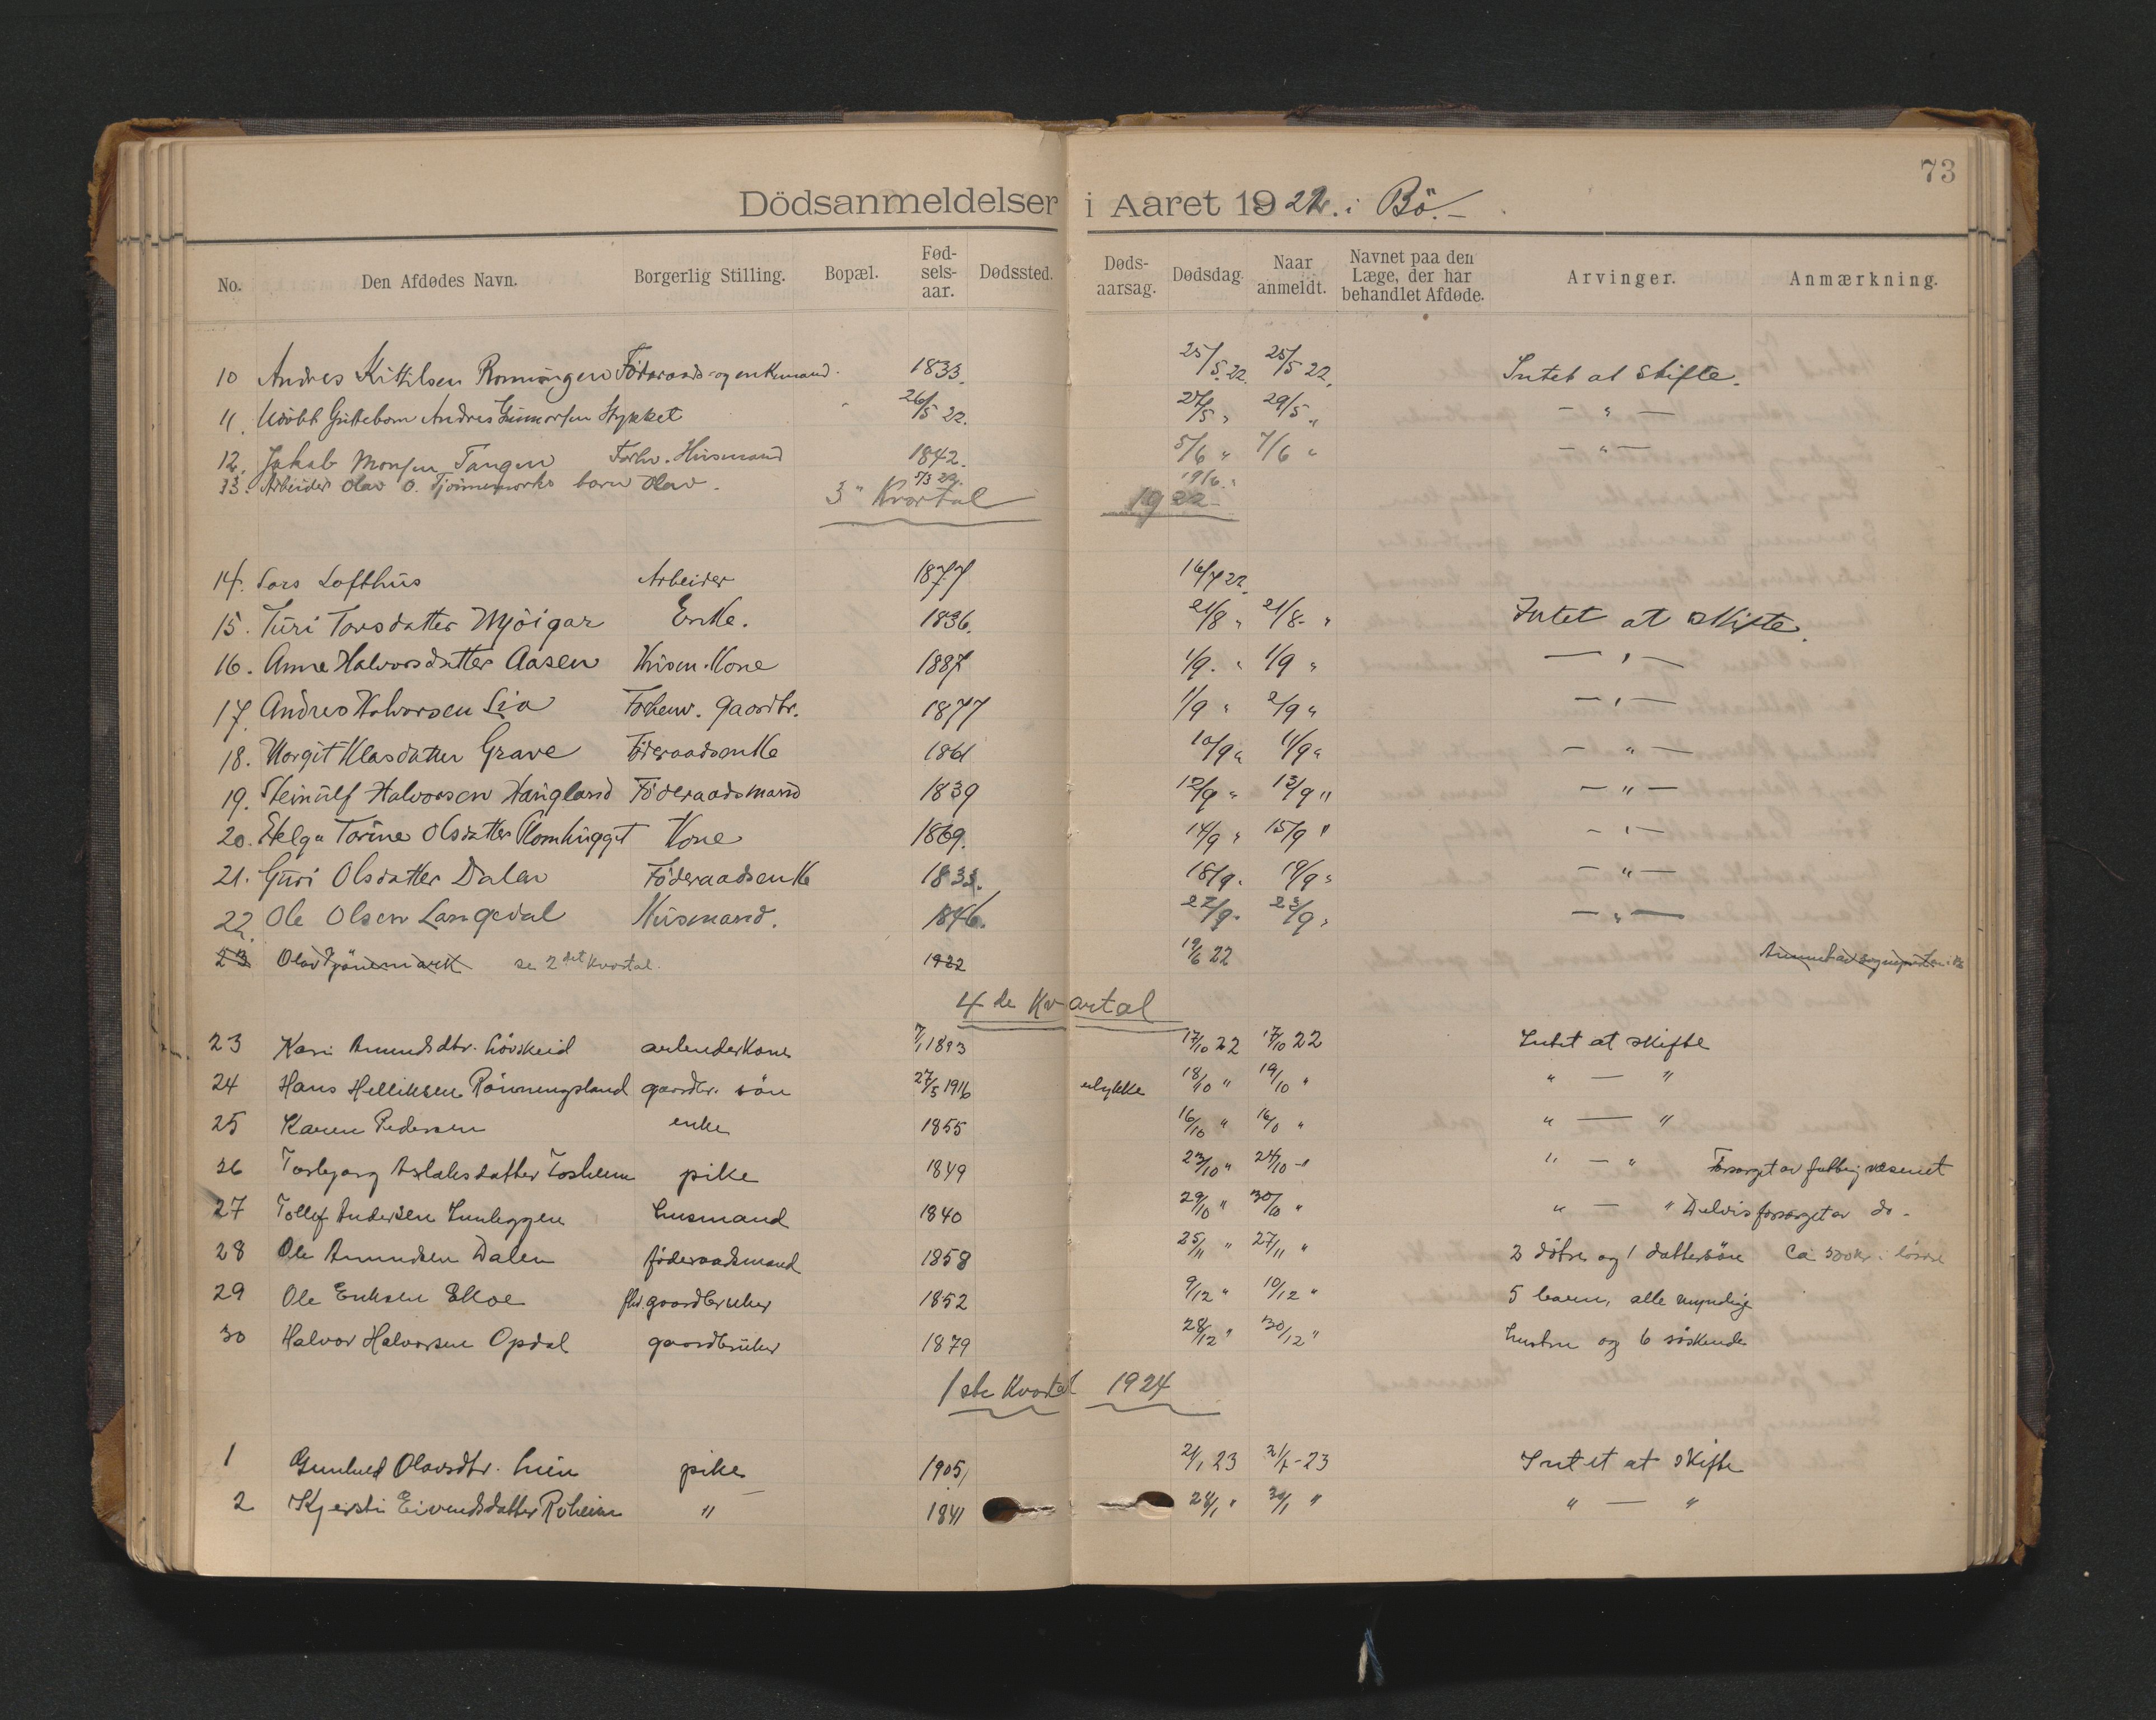 73
Dödsanmeldelser i Aaret 1922. i Bö.-
No. Den Afdødes Navn. Borgerlig Stilling. Bopæl. Fød-sels-aar. Dødssted. Døds-aarsag. Dødsdag. Naar anmeldt. Navnet paa den Læge, der har behandlet Afdøde. Arvinger. Anmærkning.
10 Andres Kittilsen Rønningen Föderaads- og enkemand. 1833. 25/5.22. 25/5 22. Intet at Skifte.
11. Andres Gunnarsen Stykket 26/5 22. 27/5 " 29/5 " - " -
12. Jakob Monsen Tangen Forhv. Husmand 1842. 5/6 " 7/6 " - " -
13. Arbeider Olav O. Tjönnemarks barn Olav. 19/6. "
3" Kvartal 1922
14. Lars Lofthus Arbeider 1877 16/7 22.
15. Turi Torsdatter Mjöigar Enke. 1836. 21/8 " 21/8- " Intet at skifte.
16. Anne Halvorsdatter Aasen Husm. Kone 1887 1/9. " 1/9 " - " -
17. Andres Halvorsen Lia Forhenv. Gaardbr. 1877 1/9 " 2/9 " - " -
18. Margit Klasdatter Grave Föderaadsenke 1861 10/9 " 11/9 " - " -
19. Steinulf Halvorsen Haugland Föderaadsmand 1839 12/9 " 13/9 " - " -
20. Helga Torine Olsdatter Plomhugget Kone 1869. 14/9 " 15/9 " - " -
21. Guri Olsdatter Dalen Föderaadsenke 1833. 18/9. 19/9 " - " -
22. Ole Olsen Langedal Husmand. 1846. 22/9. 23/9 " - " -
23 Olav Tjönnemark se 2det Kvartal. 1922 19/6 22
4de Kvartal
23 Kari Amundsdtr. Lövskeid arbeiderkone 7/1 1893 17/10 22 17/10 22 Intet at skifte
24 Hans Helliksen Rönningsland gaardbr. sön 27/5 1916 ulykke 18/10 " 19/10 " " - "
25 Karen Pedersen enke 1855 16/10 " 16/10 " " - "
26 Torbjorg Aslaksdatter Forsheim pike 1849 23/10 " 24/10 - " " - " Forsorget av fattigvæsenet
27 Tollef Andersen Lunleggen husmand 1840 29/10 " 30/10 " " - " Delvis forsorget av do -
28 Ole Amundsen Dalen föderaadsmand 1858 25/11 " 27/11 " 2 dötre og 1 dattersön Ca 500 kr. i lösöre
29 Ole Eriksen Eltvoe fhv. gaardbruker 1852 9/12 " 10/12 " 5 barn, alle myndige
30 Halvor Halvorsen Opdal gaardbruker 1879 28/12 " 30/12 " hustru og 6 söskende
1ste Kvartal 1924
1 Gunhild Olavsdtr. Lien pike 1905, 21/1 23 21/1-23 Intet at skifte
2 Kjersti Eivindsdatter Roheim " 1841 28/1 " 30/1 " " - "